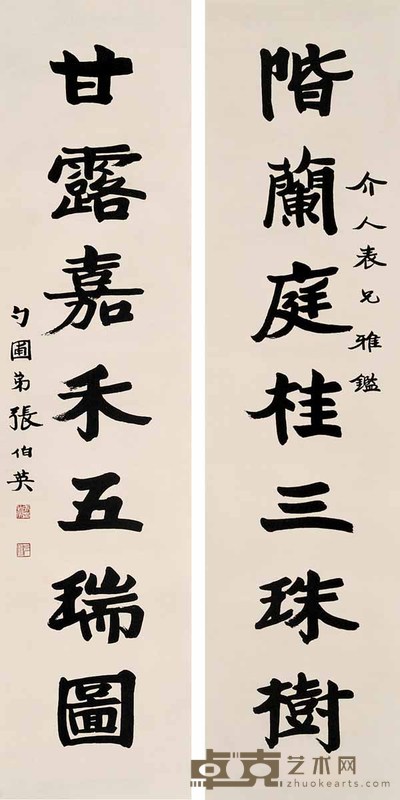 階蘭庭桂三珠樹
介人表兄雅鑑
甘露嘉禾五瑞圖
勺圃弟張伯英
卓克艺术网
zhuokearts.com